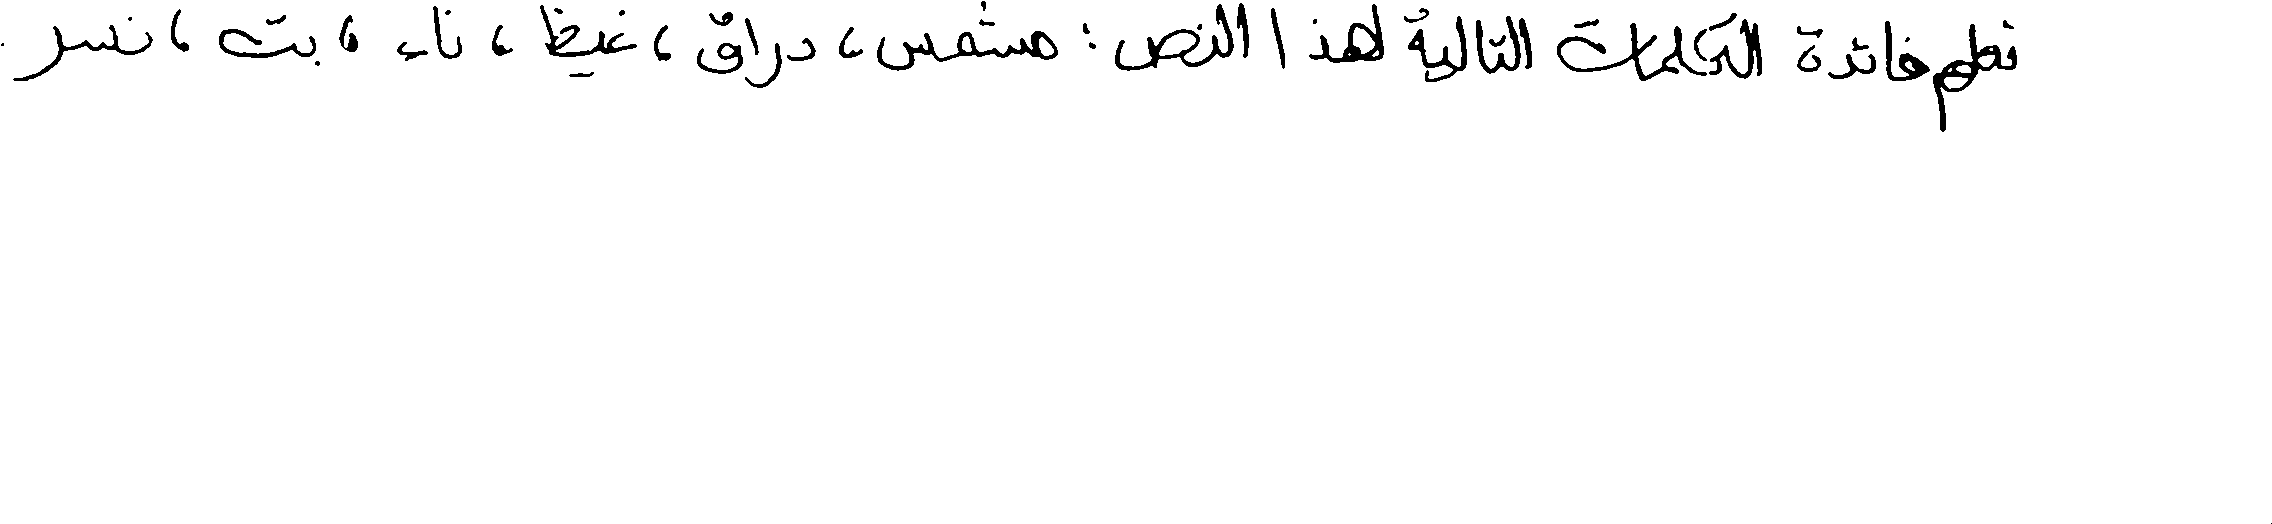 نظم فائدة الكلمات التالية لهذا النص: مشمس، دراق، غيظ، ناء، بت، نسر.